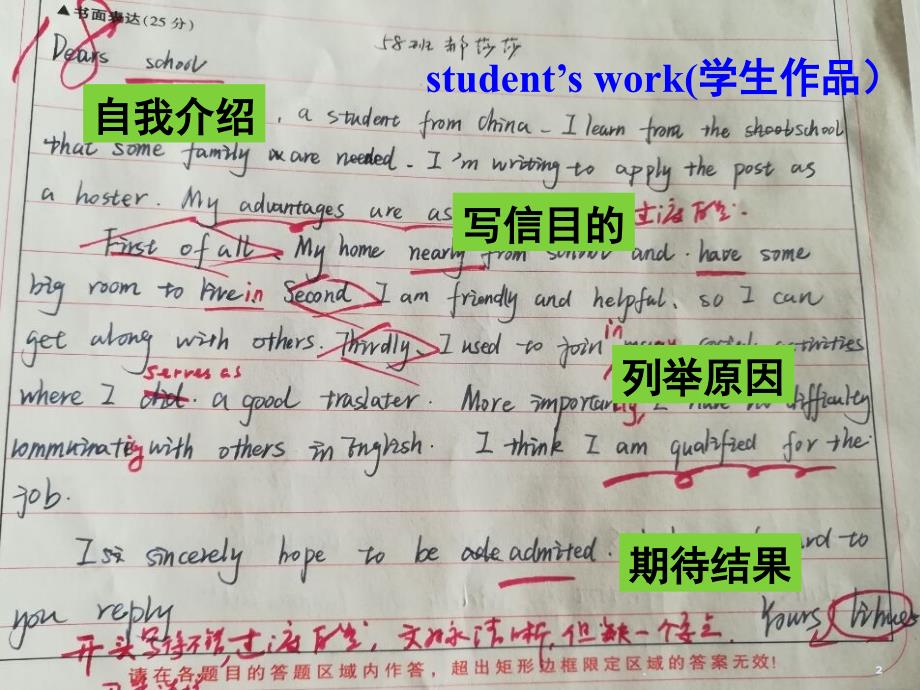 ▲书面表达(25分)
18
58班郝莎莎
Dears school
student's work(学生作品）
自我介绍
, a student from china. I learn from the school
that some family are needed. I'm writing to apply the post as
a hoster. My advantages are as
写信目的
过渡自然.
First of all, My home nearly from school and have some
big room to live in Second I am friendly and helpful, so I can
get along with others. Thirdly, I used to join in activities
列举原因
serves as
where I did a good traslater. More importantly, I have no difficulty
communicating with others in English. I think I am qualified for the
job.
I sincerely hope to be admitted.
期待结果
to
you reply
Yours,
开头写得不错,过渡自然,文脉清晰,但缺一个要点.
请在各题目的答题区域内作答，超出矩形边框限定区域的答案无效!
2